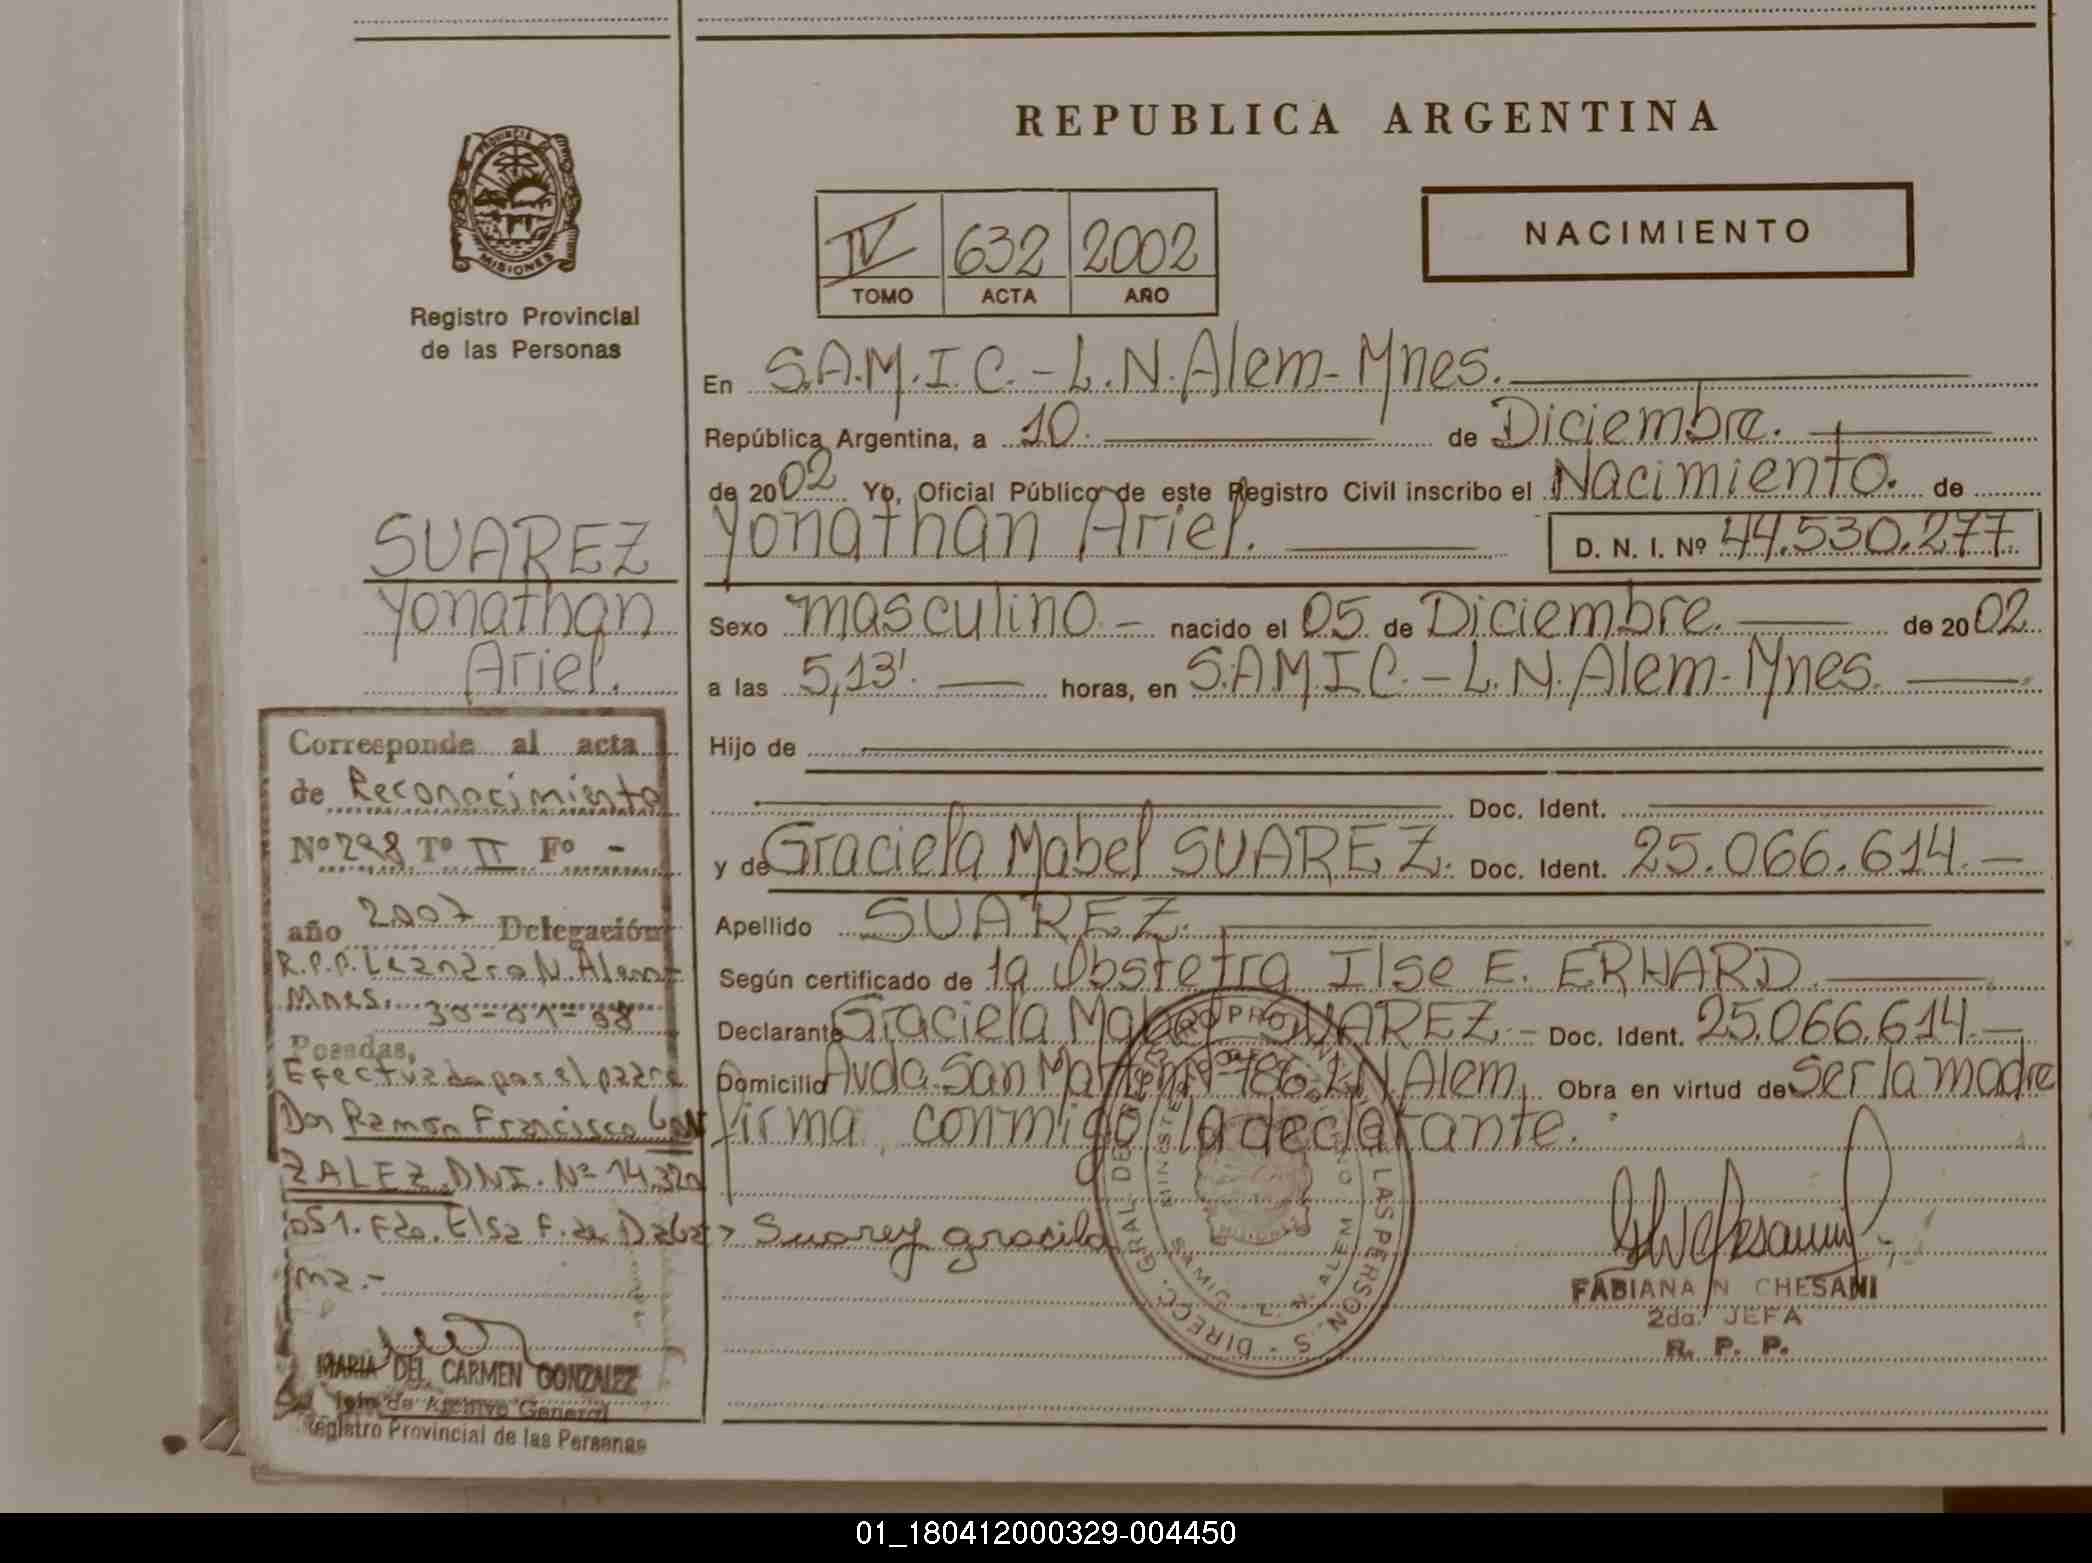 REPUBLICA ARGENTINA
PROVINCIA DE
MISIONES
Registro Provincial
de las Personas
IV 632 2002
TOMO ACTA AÑO
NACIMIENTO
En S.A.M.I.C.-L.N.Alem-Mnes.
República Argentina, a 10. de Diciembre.
de 2002 Yo, Oficial Público de este Registro Civil inscribo el Nacimiento. de
Yonathan Ariel. D. N. I. Nº 44.530.277
Sexo masculino - nacido el 05 de Diciembre. de 2002
a las 5,13'. horas, en S.A.M.I.C.-L.N.Alem-Mnes.
Hijo de
Doc. Ident.
y de Graciela Mabel SUAREZ. Doc. Ident. 25.066.614.-
Apellido SUAREZ.
Según certificado de la Obstetra Ilse E. ERHARD.
Declarante Graciela Mabel SUAREZ.- Doc. Ident. 25.066.614.-
Domicilio Avda. San Martín Nº 786 L.N.Alem. Obra en virtud de ser la madre
firma, conmigo la declarante.
Suarez gracila
FABIANA N CHESANI
2da. JEFA
R. P. P.
SUAREZ
Yonathan
Ariel.
Corresponde al acta
de Reconocimiento
Nº 298 Tº II Fº -
año 2007 Delegación
R.P.P. Leandro N. Alem-
Mnes. 30-01-08
Posadas,
Efectuada por el padre
Don Ramón Francisco GON
ZALEZ. DNI. Nº 14.320
051. Fdo. Elsa F. de
ma.-
MARIA DEL CARMEN GONZALEZ
Jefe de Archivo General
Registro Provincial de las Personas
01_180412000329-004450